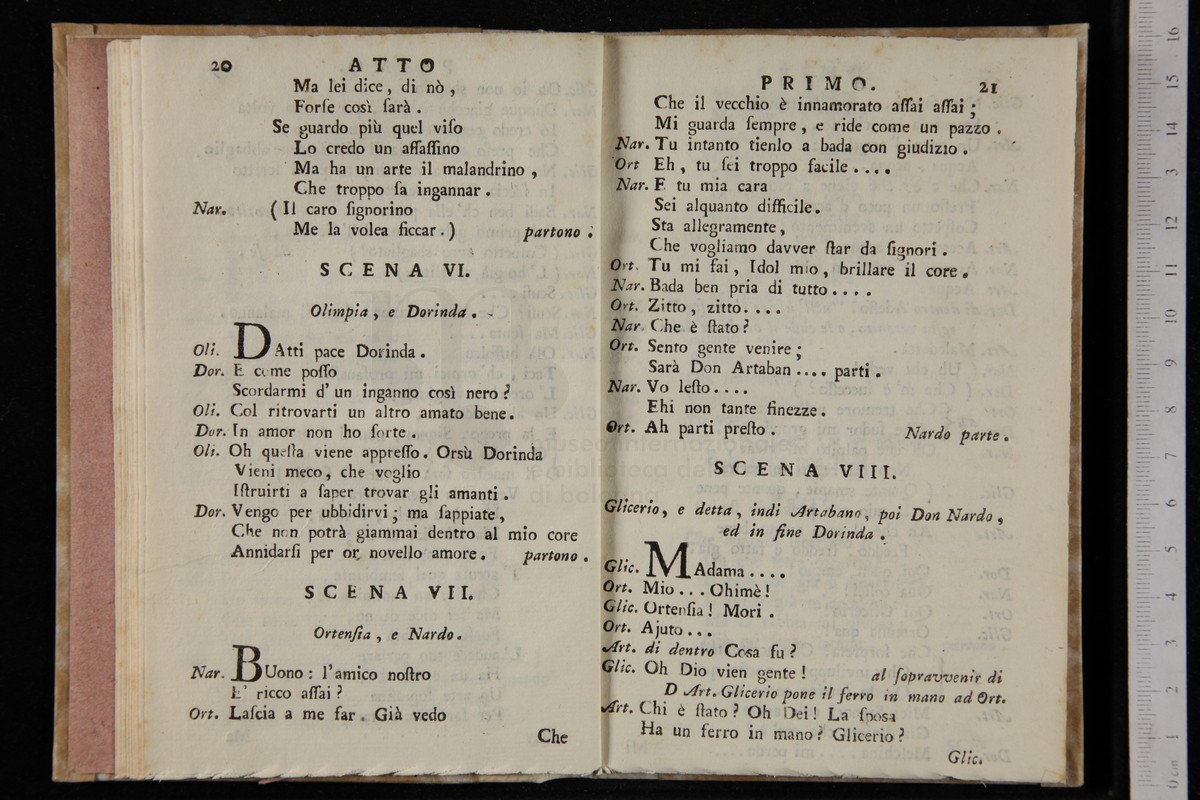 20 ATTO
Ma lei dice, di nò,
Forſe così ſarà.
Se guardo più quel viſo
Lo credo un aſſaſſino
Ma ha un arte il malandrino,
Che troppo ſa ingannar.
Nar. (Il caro ſignorino
Me la volea ficcar.) partono.
SCENA VI.
Olimpia, e Dorinda.
Oli. DAtti pace Dorinda.
Dor. E come poſſo
Scordarmi d'un inganno così nero?
Oli. Col ritrovarti un altro amato bene.
Dor. In amor non ho ſorte.
Oli. Oh queſta viene appreſſo. Orsù Dorinda
Vieni meco, che voglio
Iſtruirti a ſaper trovar gli amanti.
Dor. Vengo per ubbidirvi; ma ſappiate,
Che non potrà giammai dentro al mio core
Annidarſi per or novello amore. partono.
SCENA VII.
Ortenſia, e Nardo.
Nar. BUono: l'amico noſtro
E' ricco aſſai?
Ort. Laſcia a me far. Già vedo
Che
PRIMO. 21
Che il vecchio è innamorato aſſai aſſai;
Mi guarda ſempre, e ride come un pazzo.
Nar. Tu intanto tienlo a bada con giudizio.
Ort Eh, tu ſei troppo facile....
Nar. E tu mia cara
Sei alquanto difficile.
Sta allegramente,
Che vogliamo davver ſtar da ſignori.
Ort. Tu mi fai, Idol mio, brillare il core.
Nar. Bada ben pria di tutto....
Ort. Zitto, zitto....
Nar. Che è ſtato?
Ort. Sento gente venire;
Sarà Don Artaban.... parti.
Nar. Vo leſto....
Ehi non tante finezze.
Ort. Ah parti preſto. Nardo parte.
SCENA VIII.
Glicerio, e detta, indi Artabano, poi Don Nardo,
ed in fine Dorinda.
Glic. MAdama....
Ort. Mio... Ohimè!
Glic. Ortenſia! Mori.
Ort. Ajuto...
Art. di dentro Coſa fu?
Glic. Oh Dio vien gente! al ſopravvenir di
D Art. Glicerio pone il ferro in mano ad Ort.
Art. Chi è ſtato? Oh Dei! La ſpoſa
Ha un ferro in mano? Glicerio?
Glic.
museo internazionale
e biblioteca della musica
di bologna
0 cm 1 2 3 4 5 6 7 8 9 10 11 12 13 14 15 16